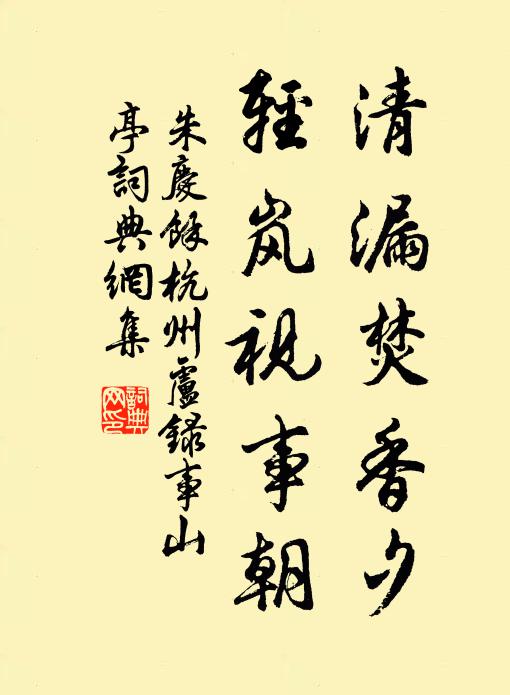 清漏焚香夕
輕岚視事朝
朱慶餘杭州盧録事山
亭詞典網集
詞典
网印